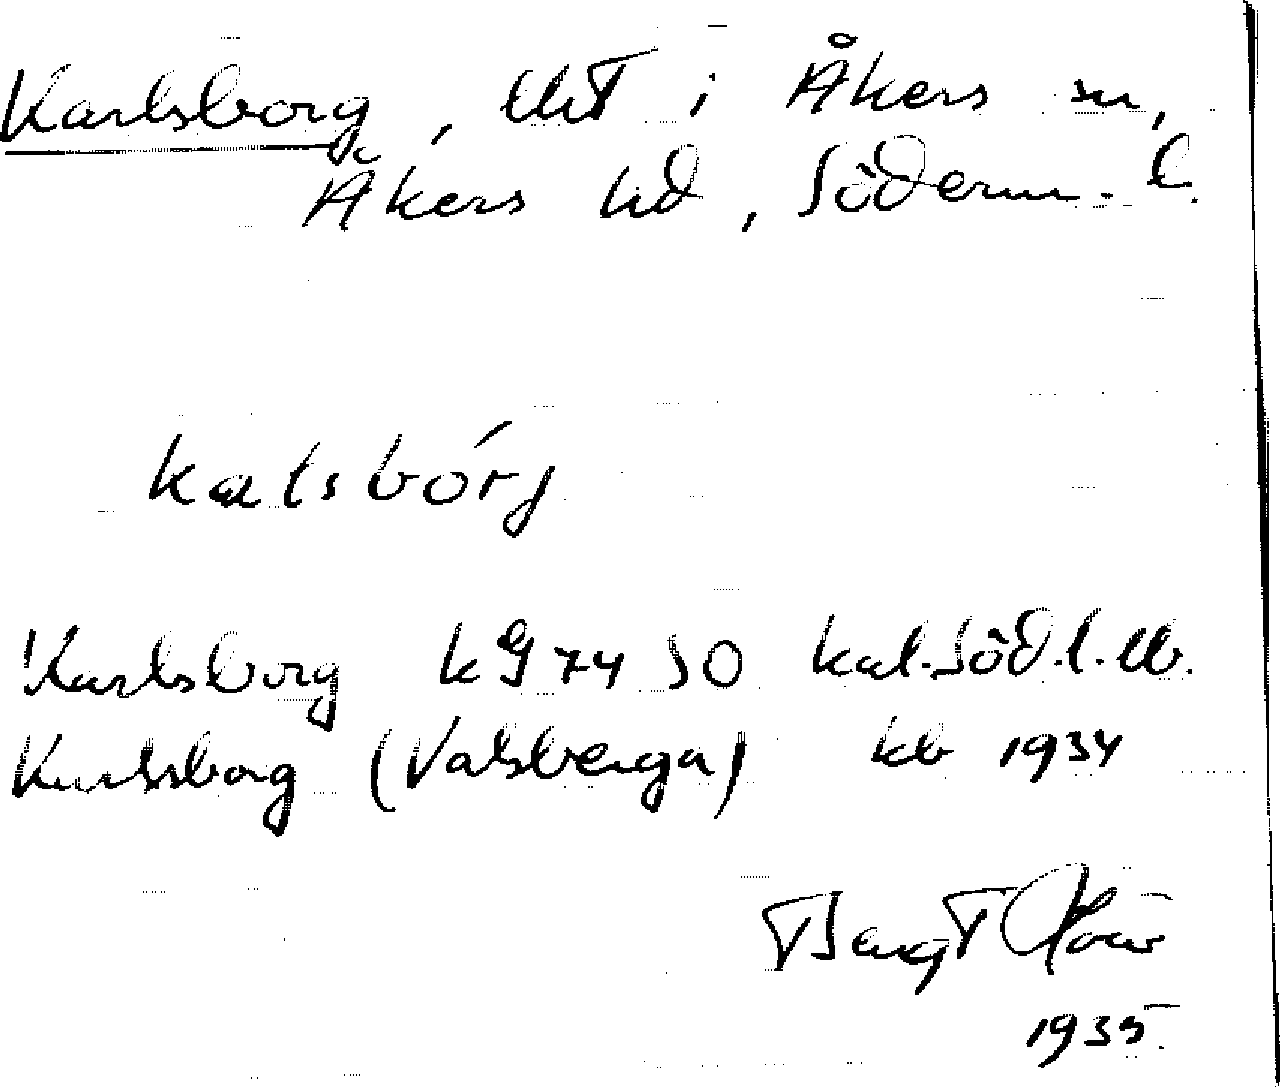 Karlsborg, tht i Åkers sn,
Åkers hd, Söderm. l.
kalsbórj
Karlsborg kg 74 SO kal. Söd. l. lb.
Karlsborg (Valsberga) kb 1934
Bengt
1935.